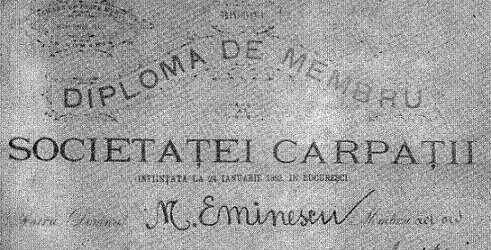 DIPLOMA DE MEMBRU
SOCIETAȚEI CARPAȚII
INFIINȚATA LA 24 IANUARIE 1882 IN BUCUREȘCI
M. Eminescu Membru